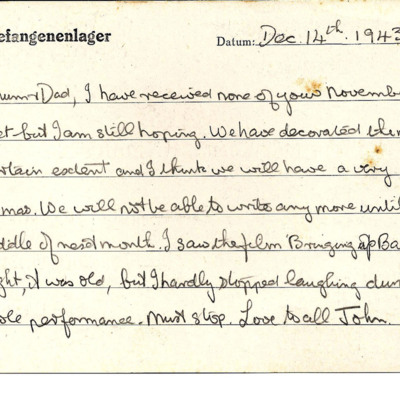 efangenenlager
Datum: Dec. 14th. 1943
Mum & Dad, I have received none of your Novembe
et but I am still hoping. We have decorated the
rtain extent and I think we will have a very
mas. We will not be able to write any more until
ddle of next month. I saw the film 'Bringing up Ba
ght, it was old, but I hardly stopped laughing dur
ole performance. Must stop. Love to all John.